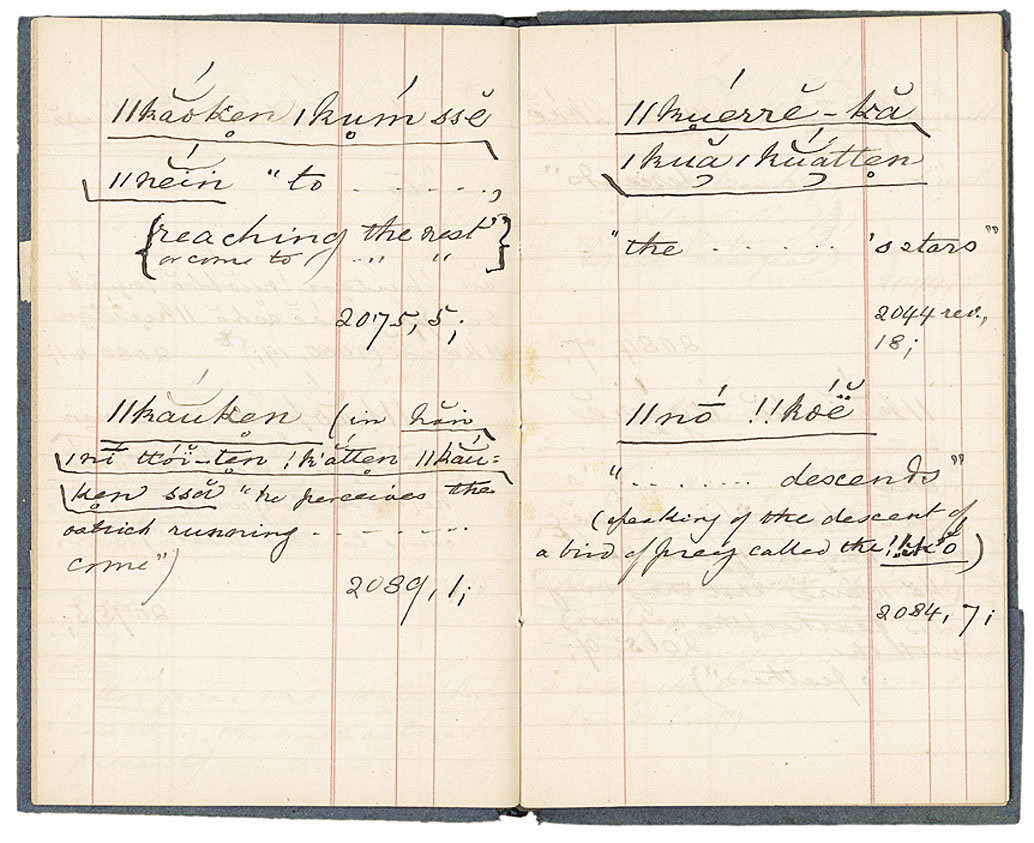 ǁkắŏk̥en ǀkṳ́m ssĕ
ǁnĕín "to . . . . . . ,
{reaching the nest"}
or come to " . . " "
2075, 5;
ǁkắŭk̥en (in hăn
ǀnī ttóï-te̥n !kắtte̥n ǁkắu=
k̥en ssắ "he perceives the
ostrich running - - - - - - -
come")
2089, 1;
ǁkṳ́errĕ-kă
ǀkuă ǀkŭắtte̥n
"the . . . . . . 's stars"
2044 rev.,
18;
ǁnṓ !!kŏë̆
". . . . . . . descends"
(speaking of the descent of
a bird of prey called the )
2084, 7;